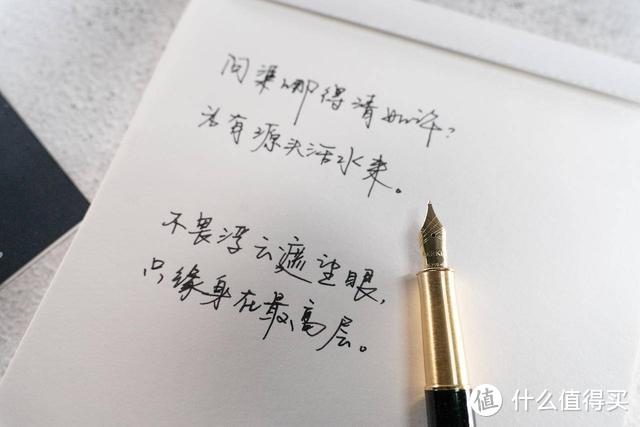 问渠哪得清如许？
为有源头活水来。
不畏浮云遮望眼，
只缘身在最高层。
值 什么值得买